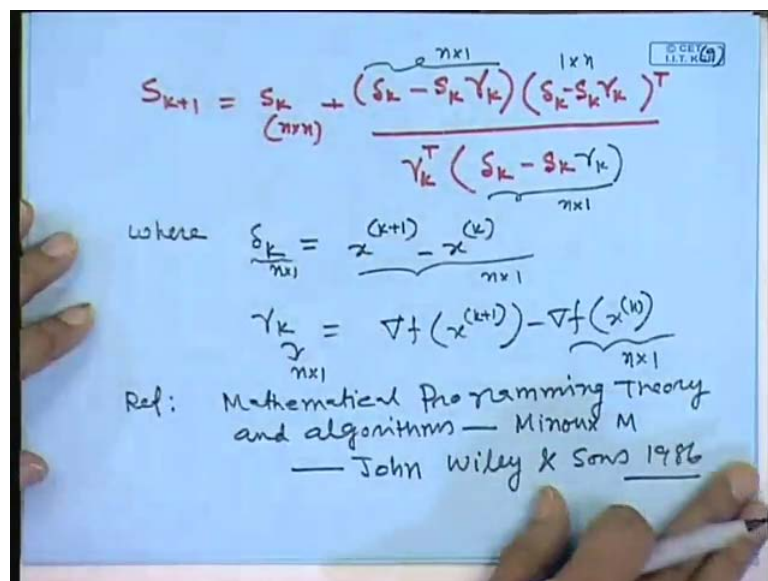 n×1 1×n © CET I.I.T. K
S_{k+1} = S_k + (δ_k - S_k γ_k) (δ_k - S_k γ_k)^T
(n×n)
γ_k^T (δ_k - S_k γ_k)
n×1
where δ_k = x^{(k+1)} - x^{(k)}
n×1 n×1
γ_k = ∇f(x^{(k+1)}) - ∇f(x^{(k)})
n×1 n×1
Ref: Mathematical Programming Theory
and algorithms — Minoux M
— John Wiley & Sons 1986